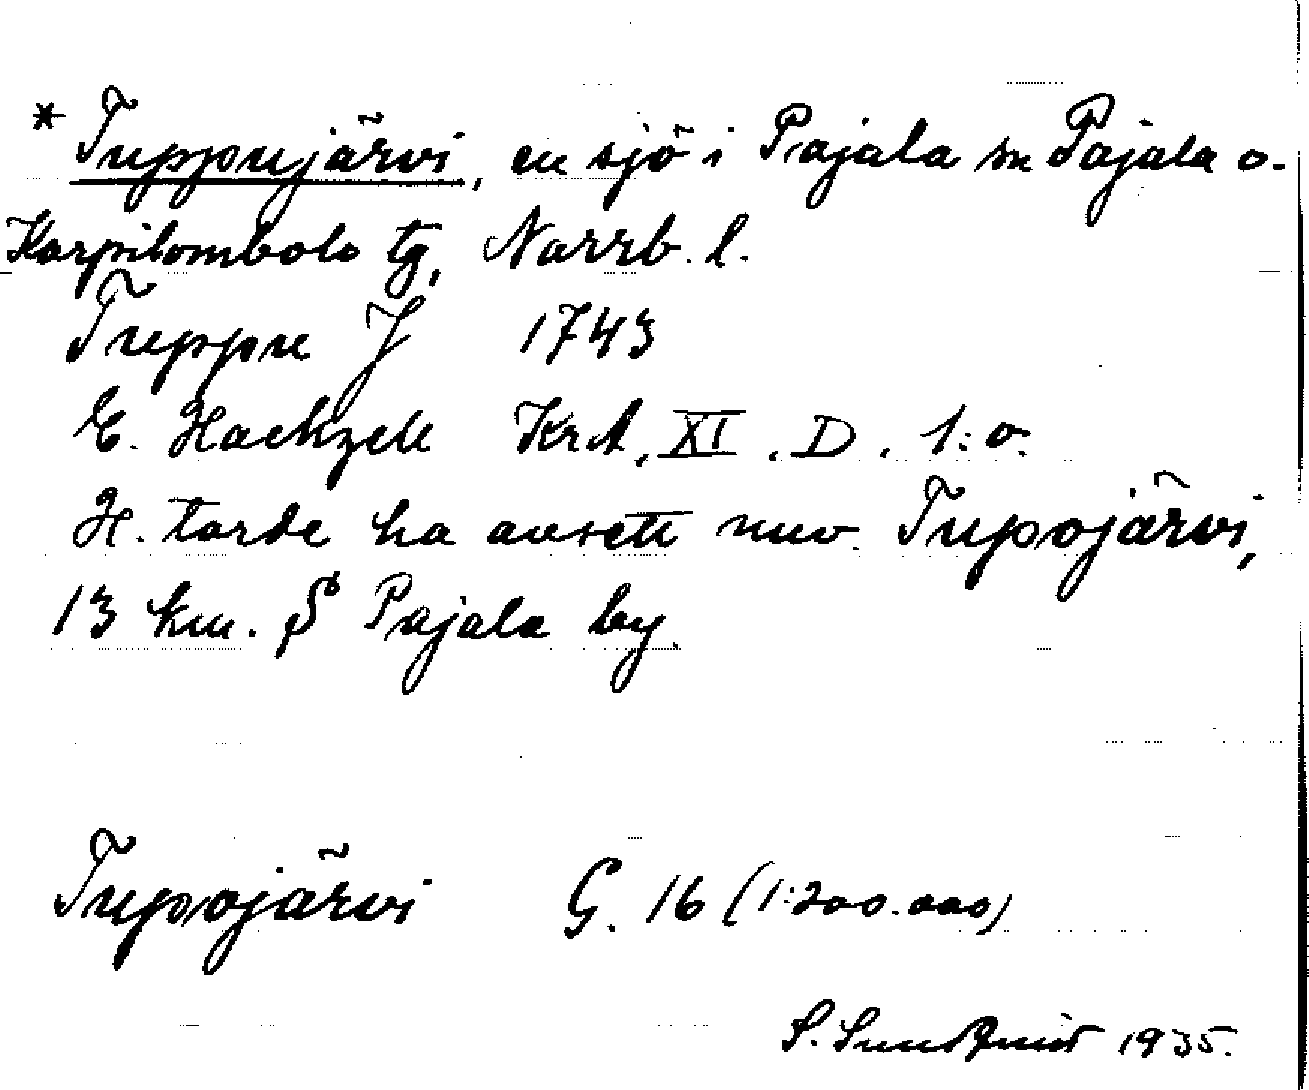 * Tuppujärvi, en sjö i Pajala sn Pajala o.
Korpilombolo tg, Norrb. l.
Tuppu J 1743
E. Hackzell KrA, XI. D. 1:o.
H. torde ha avsett nuv. Tupojärvi,
13 km. S Pajala by.
Tupojärvi G. 16 (1:200.000)
S. Sundqvist 1935.